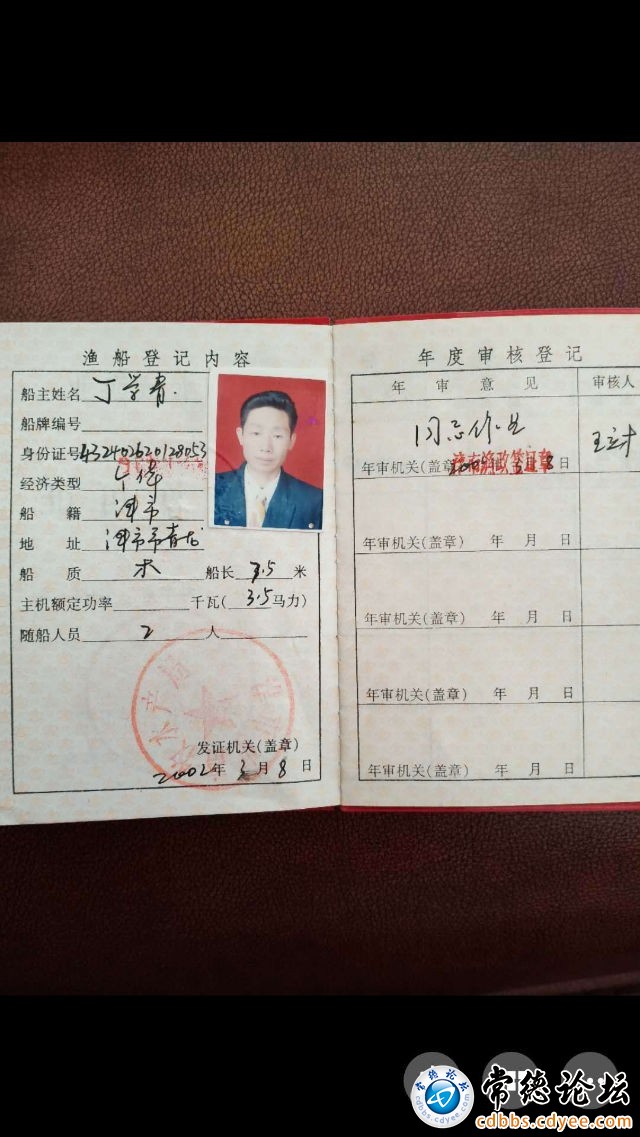 渔船登记内容
船主姓名 丁学青
船牌编号
身份证号 432402620128053
经济类型 个体
船籍 津市
地址 津市市青龙
船质 木 船长 7.5 米
主机额定功率 千瓦( 3.5 马力)
随船人员 2 人
发证机关(盖章)
2002年3月8日
年度审核登记
年审意见 审核人
同意作业 王立才
年审机关(盖章) 8日
年审机关(盖章) 年 月 日
年审机关(盖章) 年 月 日
年审机关(盖章) 年 月 日
年审机关(盖章) 年 月 日
常德论坛
cdbbs.cdyee.com